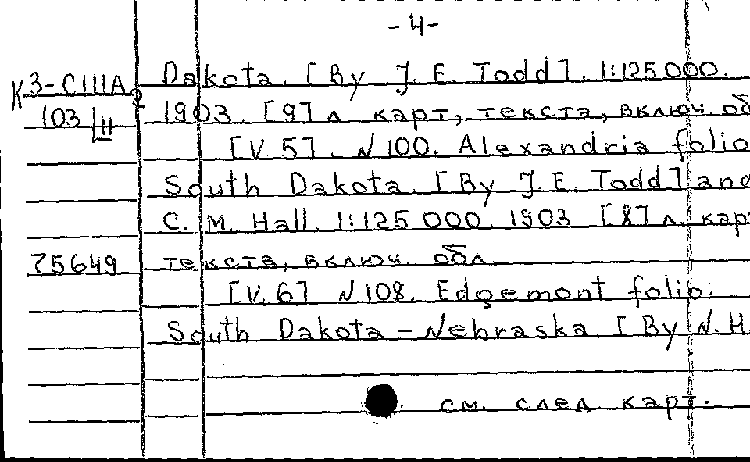 -4-
К3-СIIIA Dakota. [By J. E. Todd]. 1:125 000.
103 1903. [9] л. карт, текста, включ. об
[V. 5]. N 100. Alexandria folio
South Dakota. [By J. E. Todd] and
C. M. Hall. 1:125 000. 1903 [8] л. карт
75649 текста, включ. обл.
[V. 6] N 108. Edgemont folio.
South Dakota - Nebraska [By N. H.
см. след. карт.